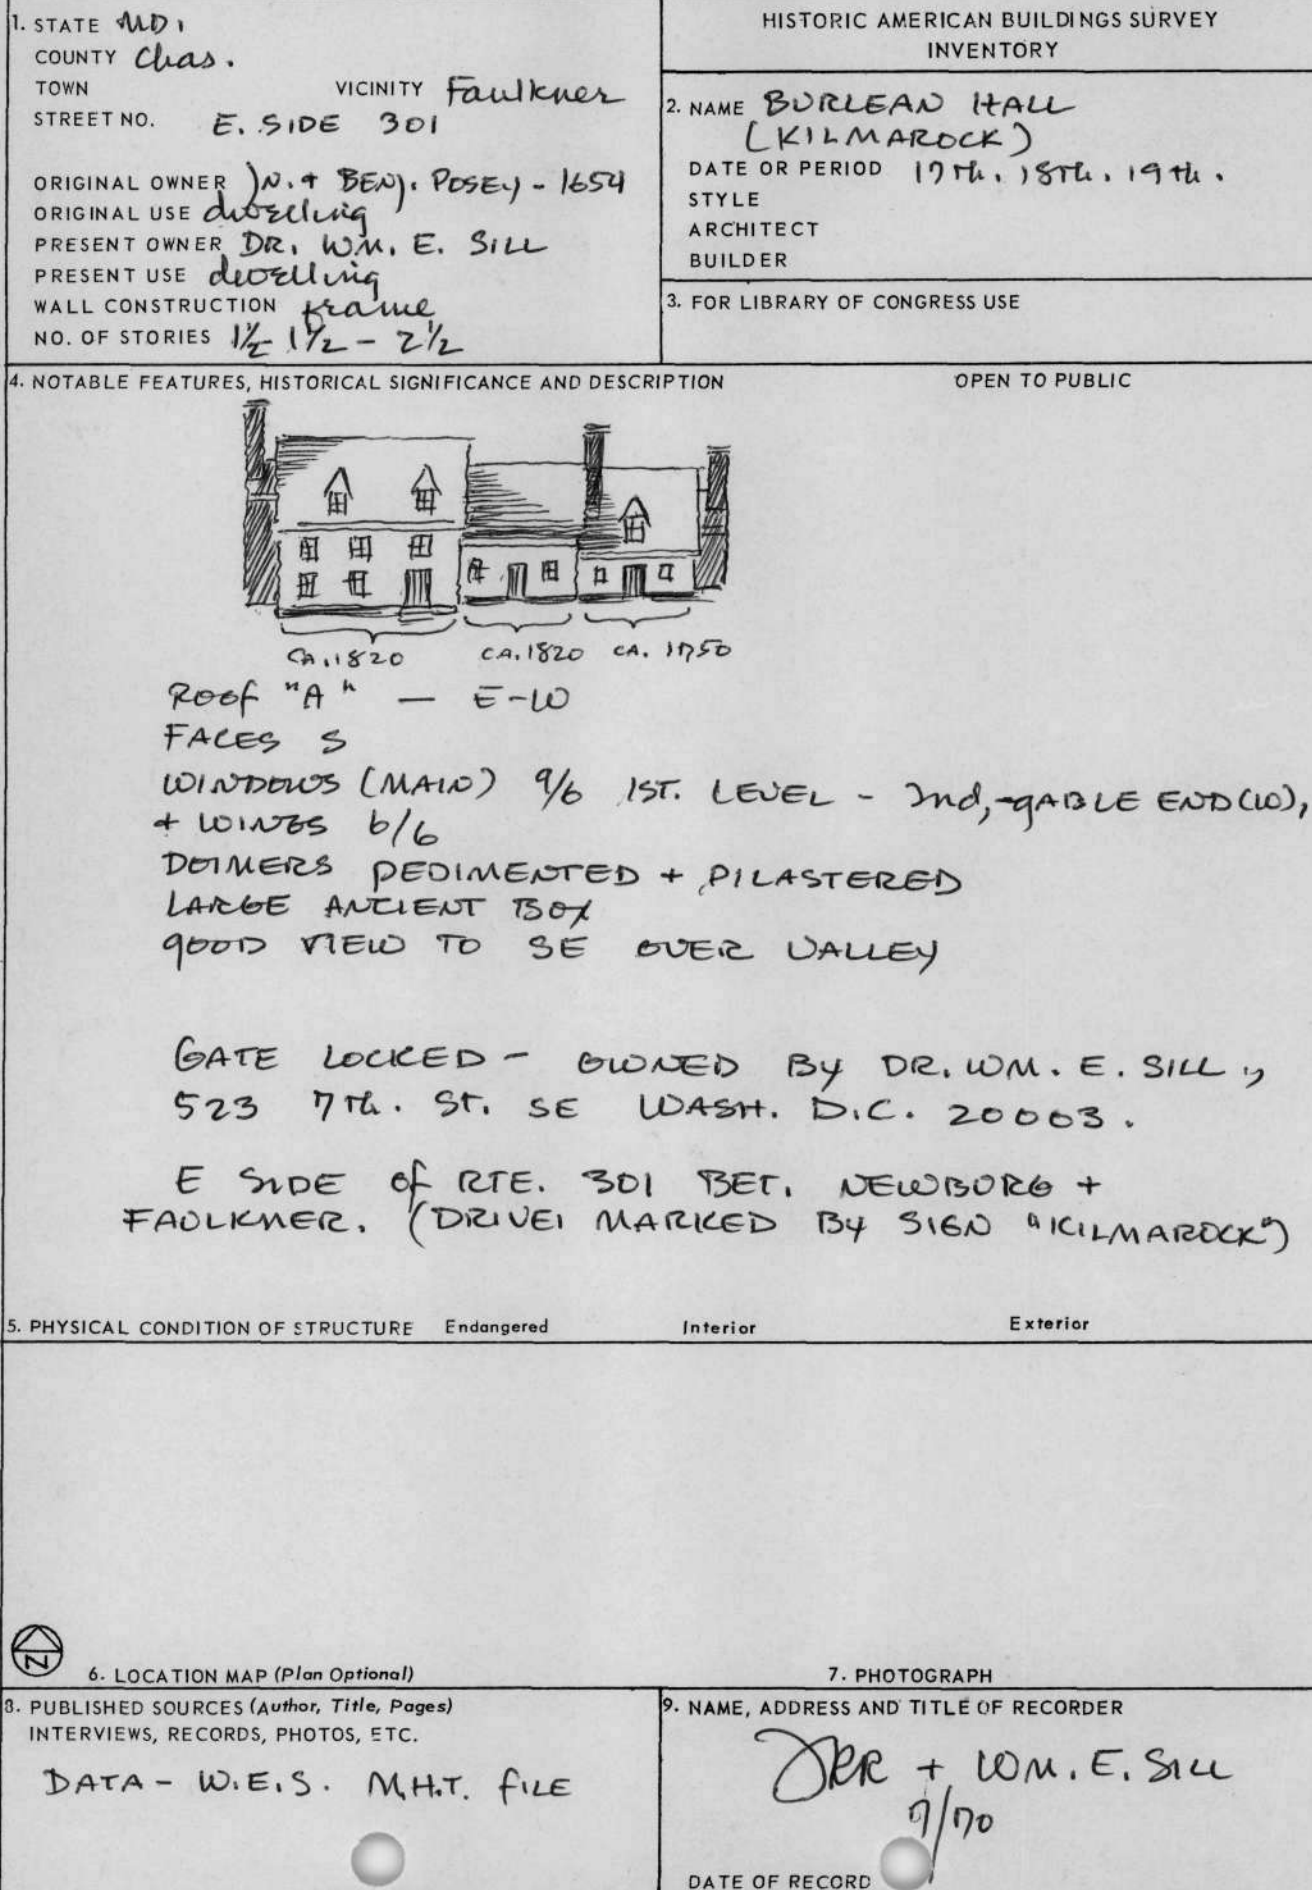 1. STATE MD.
COUNTY Chas.
TOWN VICINITY Faulkner
STREET NO. E. SIDE 301
ORIGINAL OWNER JN. + BENJ. POSEY - 1654
ORIGINAL USE dwelling
PRESENT OWNER DR. WM. E. SILL
PRESENT USE dwelling
WALL CONSTRUCTION frame
NO. OF STORIES 1½ 1½ - 2½
HISTORIC AMERICAN BUILDINGS SURVEY
INVENTORY
2. NAME BURLEAN HALL
(KILMAROCK)
DATE OR PERIOD 17th. 18th. 19th.
STYLE
ARCHITECT
BUILDER
3. FOR LIBRARY OF CONGRESS USE
4. NOTABLE FEATURES, HISTORICAL SIGNIFICANCE AND DESCRIPTION OPEN TO PUBLIC
CA. 1820 CA. 1820 CA. 1750
ROOF "A" — E-W
FACES S
WINDOWS (MAIN) 9/6 1ST. LEVEL - 2nd,-GABLE END (W),
+ WINGS 6/6
DORMERS PEDIMENTED + PILASTERED
LARGE ANCIENT BOX
GOOD VIEW TO SE OVER VALLEY
GATE LOCKED - OWNED BY DR. WM. E. SILL,
523 7th. ST. SE WASH. D.C. 20003.
E SIDE OF RTE. 301 BET. NEWBURG +
FAULKNER. (DRIVE MARKED BY SIGN "KILMAROCK")
5. PHYSICAL CONDITION OF STRUCTURE Endangered Interior Exterior
N
6. LOCATION MAP (Plan Optional) 7. PHOTOGRAPH
8. PUBLISHED SOURCES (Author, Title, Pages)
INTERVIEWS, RECORDS, PHOTOS, ETC.
DATA - W.E.S. M.H.T. FILE
9. NAME, ADDRESS AND TITLE OF RECORDER
JRR + WM. E. SILL
7/70
DATE OF RECORD